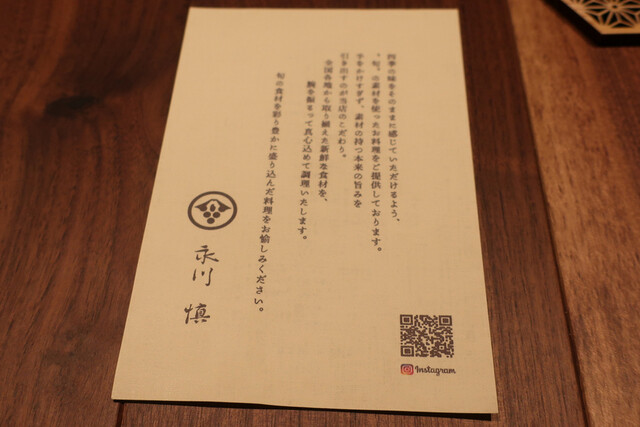 四季の味をそのままに感じていただけるよう、
、旬、の素材を使ったお料理をご提供しております。
手をかけすぎず、素材の持つ本来の旨みを
引き出すのが当店のこだわり。
全国各地から取り揃えた新鮮な食材を、
腕を振るって真心込めて調理いたします。
旬の食材を彩り豊かに盛り込んだ料理をお愉しみください。
永川 慎
Instagram